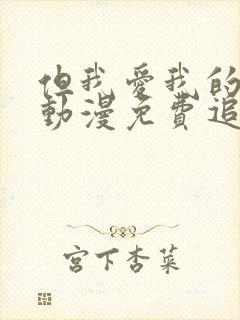 但我愛我的
動漫免費追
宮下杏菜